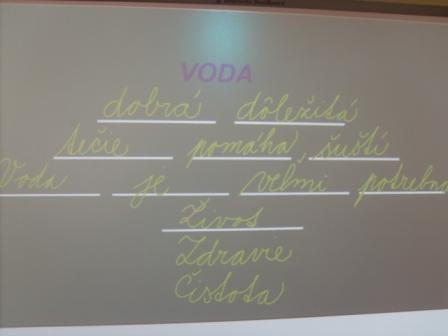 VODA
dobrá dôležitá
tečie pomáha šuští
Voda je veľmi potrebná
Živos
Zdravie
Čistota